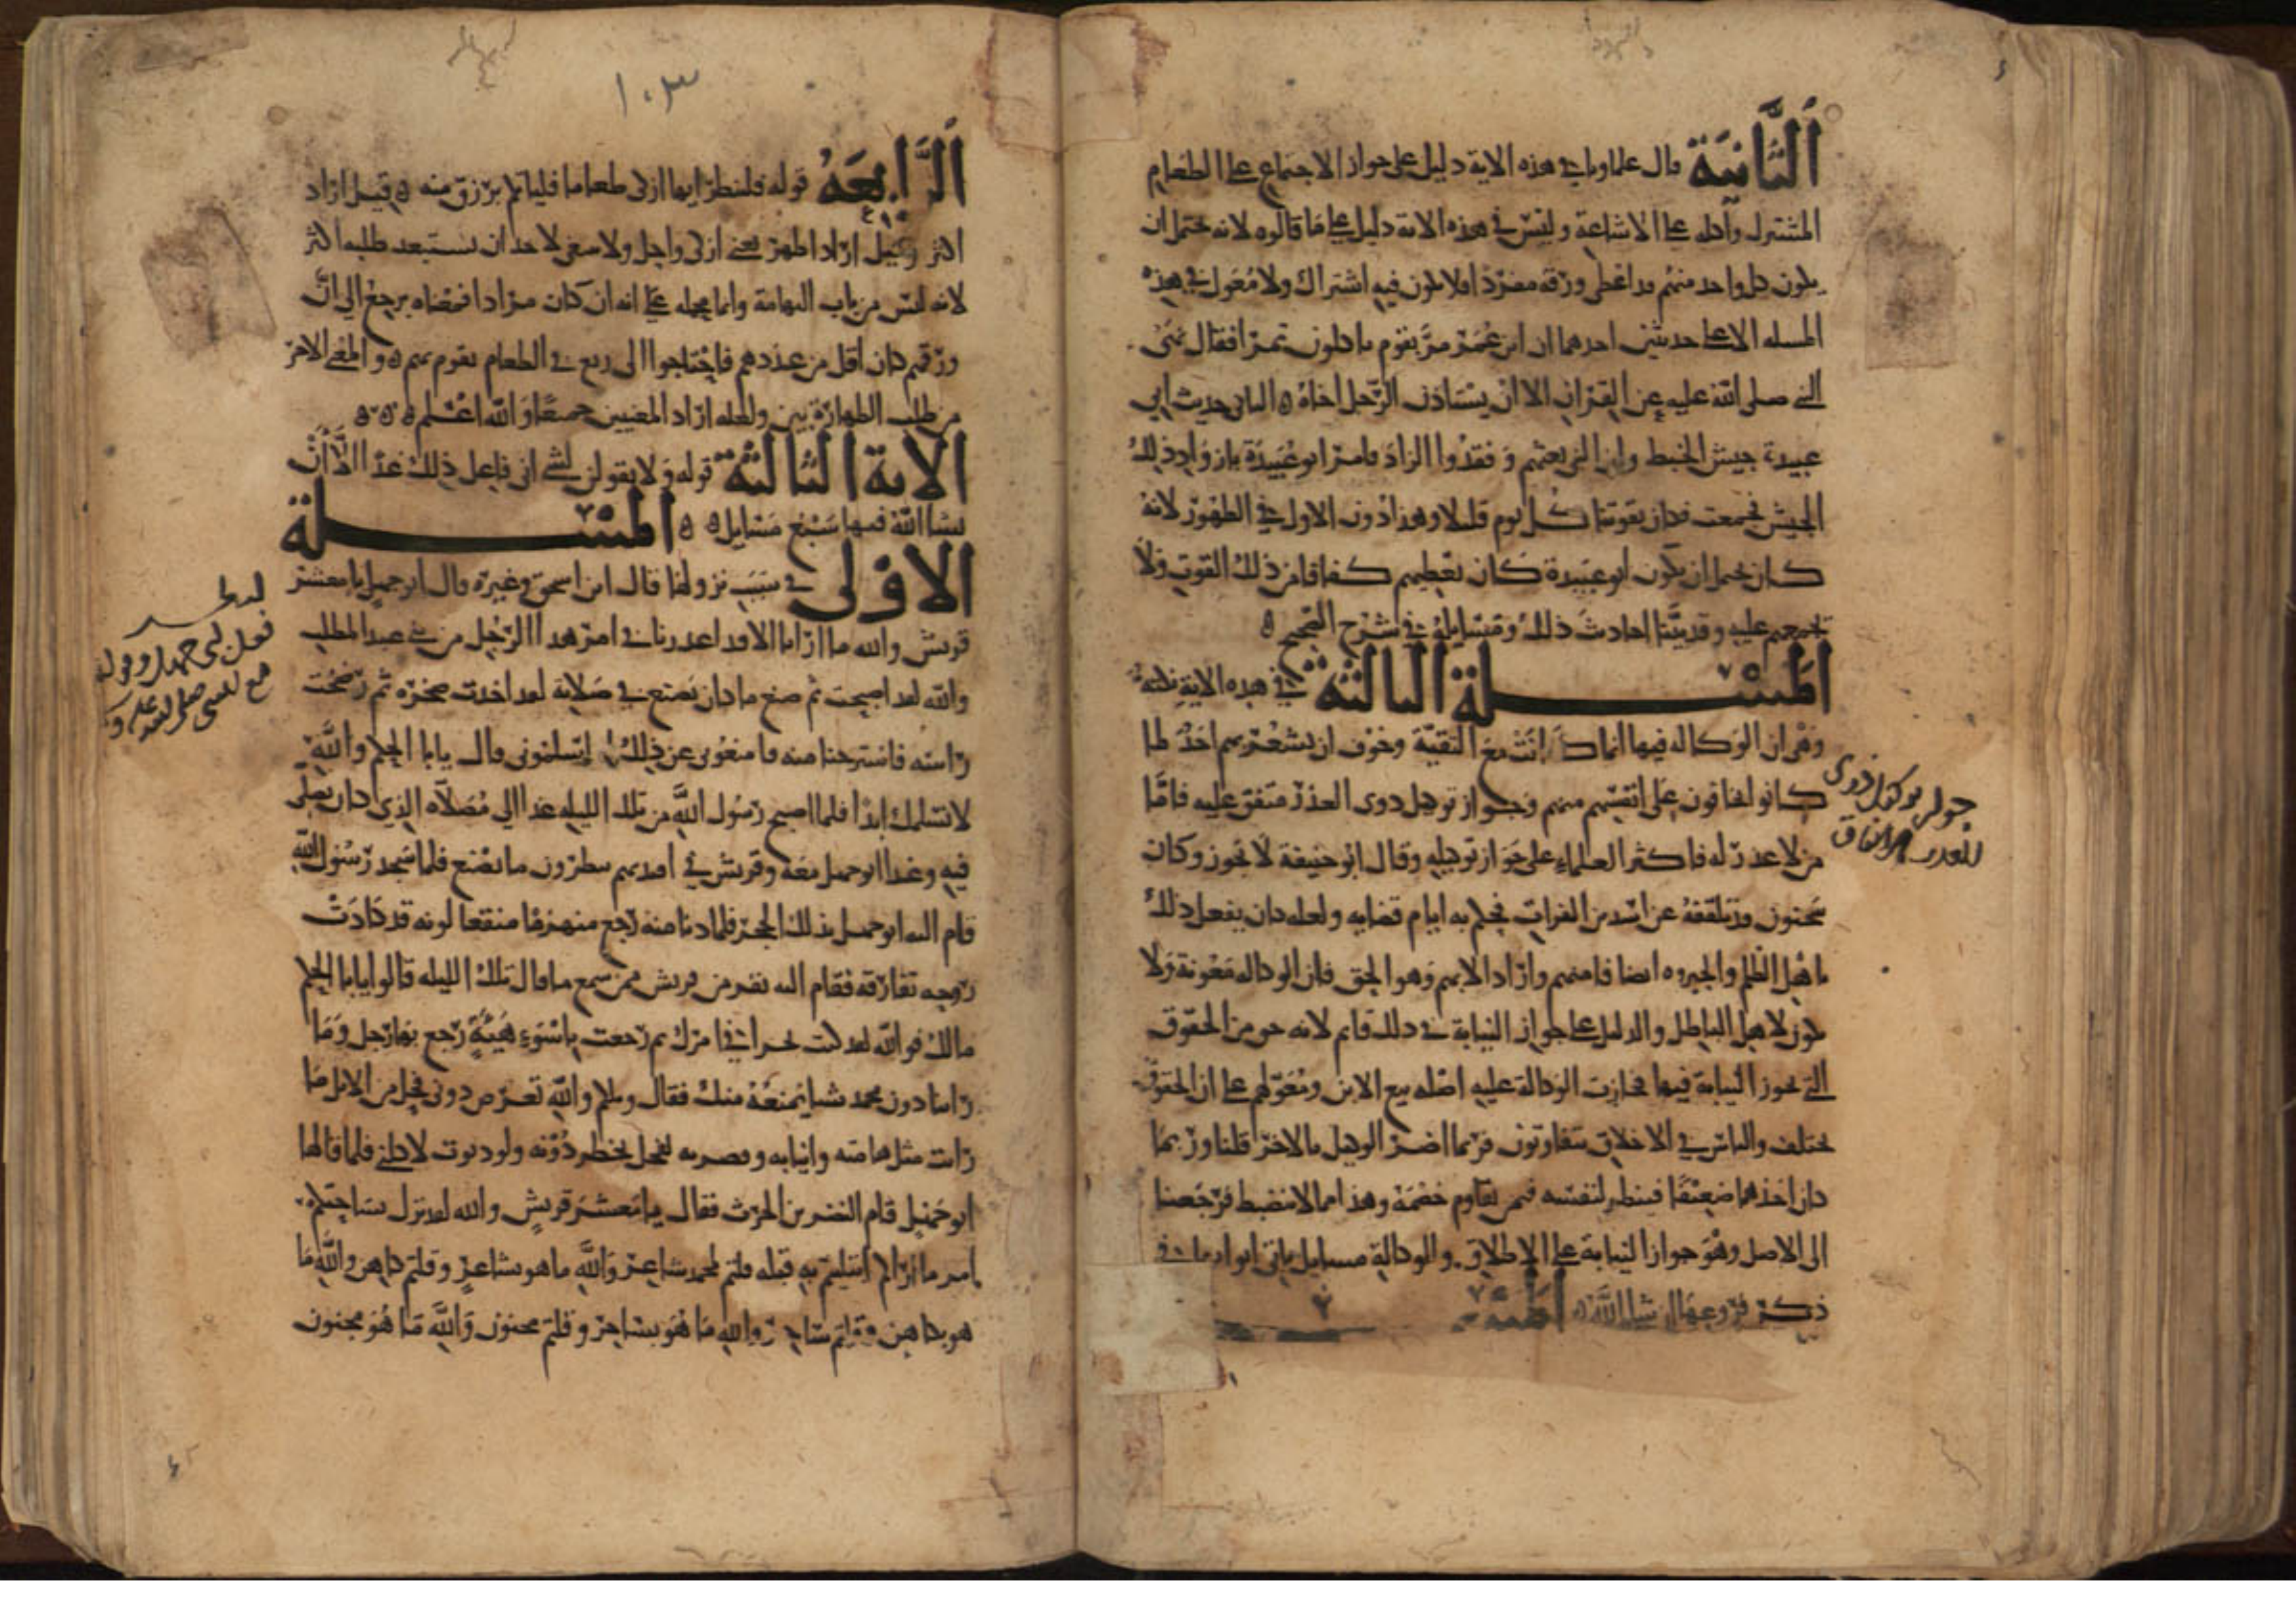 الثَّانِيَة قال علماونا في هذه الاية دليل على جواز الاجتماع على الطعام
المشترك واكله على الاشاعة وليس في هذه الاية دليل على ما قالوه لانه يحتمل ان
يكون كل واحد منهم قد اعطى ورقه مفردا فلا يكون فيه اشتراك ولا معول في هذه
المسله الا على حديثين احدهما ان ابن عمر مر بقوم ياكلون تمرا فقال نهى
النبي صلى الله عليه عن القران الا ان يستاذن الرجل اخاه ه الثاني حديث ابي
عبيدة جيش الخبط وان النبي بعثهم وفقدوا الزاد فامر ابو عبيدة بازواد ذلك
الجيش فجمعت فكان يقوتنا كل يوم قليلا وهذا دون الاول في الظهور لانه
كان يحتمل ان يكون ابو عبيدة كان يعطيهم كفافا من ذلك القوت ولا
يجمعهم عليه وقد بينا احاديث ذلك ومسايله في شرح الصحيح ه
المسلة الثالثة في هذه الاية نكتة
وهي ان الوكالة فيها انما كانت مع التقية وخوف ان يشعر بهم احد لما
كانوا يخافون على انفسهم منهم وجواز توكيل ذوي العذر متفق عليه فاما
من لا عذر له فاكثر العلماء على جواز توكيله وقال ابو حنيفة لا يجوز وكان
سحنون قد تلقفه عن اسد بن الفرات فحكم به ايام قضايه ولعله كان يفعل ذلك
باهل الظلم والجبروه انصافا منهم وارادا لابهم وهو الحق فان الوكاله معونة ولا
تكون لاهل الباطل والدليل على جواز النيابة في ذلك قايم لانه حق من الحقوق
التي تجوز النيابة فيها فجازت الوكالة عليه اصله بيع الابن ومعولهم على ان الحقوق
تختلف والناس في الاخلاق يتفاوتون فربما اضر الوكيل بالاخر قلنا وربما
كان احدهما ضعيفا فينظر لنفسه فيمن يقاوم خصمه وهذا مما لا ينضبط فرجعنا
الى الاصل وهو جواز النيابة على الاطلاق وللوكالة مسايل ياتي في
ذكر فروعها ان شا الله ه المسلة
جواز توكيل ذوي
العذر بالاتفاق
١٠٣
الرَّابِعَةُ قوله فلينظر ايها ازكى طعاما فلياتكم برزق منه ه قيل اراد
اكثر وقيل اراد اطهر يعني ازكى واحل ولا ينبغي لاحد ان يستبعد طلبه اكثر
لانه ليس من باب النهامة وانما يحمله على انه ان كان مرادا فمعناه يرجع الى ان
ورقهم كان اقل من عددهم فاحتاجوا الى ربع في الطعام يقوم بهم ه والمعنى الاخر
من طلب الطهارة بين ولعله اراد المعنيين جميعا والله اعلم ه ه ه
الاية الثالثة قوله ولا تقولن لشي اني فاعل ذلك غدا الا ان
يشا الله فيها سبع مسايل ه ه المسلة
الاولى في سبب نزولها قال ابن اسحق وغيره قال ابو جهل يا معشر
قريش والله ما ارانا الا قد اعذرنا في امر هذا الرجل من بني عبد المطلب
والله لئن اصبحت ثم صنع ما كان يصنع في صلاته لقد اخذت صخره ثم رضخت
راسه فاسترحنا منه فامنعوني عن ذلك او اسلموني قال يابا الحكم والله
لا نسلمك ابدا فلما اصبح رسول الله من تلك الليله غدا الى مصلاه الذي كان يصلي
فيه وغدا ابو جهل معه وقريش في انديتهم ينظرون ما يصنع فلما سجد رسول الله
قام اليه ابو جهل بذلك الحجر فلما دنا منه رجع منهزما منتقعا لونه قد كادت
روحه تفارقه فقام اليه نفر من قريش ممن سمع ما قال تلك الليله قالوا يابا الحكم
مالك فوالله لقد كنت مجدا في امرك ثم رجعت باسوء هيئة رجع بها رجل وما
راينا دون محمد شيا يمنعه منك فقال ويلكم والله تعرض دوني فحل من الابل ما
رايت مثل هامته وانيابه وقصرته لفحل يخطر دونه ولو دنوت لاكلني فلما قالها
ابو جهل قام النضر بن الحرث فقال يا معشر قريش والله لقد نزل بساحتكم
امر ما اراكم ابتليتم به قبله قلتم لمحمد شاعر والله ما هو بشاعر وقلتم كاهن والله ما
هو بكاهن وقلتم ساحر والله ما هو بساحر وقلتم مجنون والله ما هو مجنون
فعل ابي جهل
مع النبي صلى الله عليه